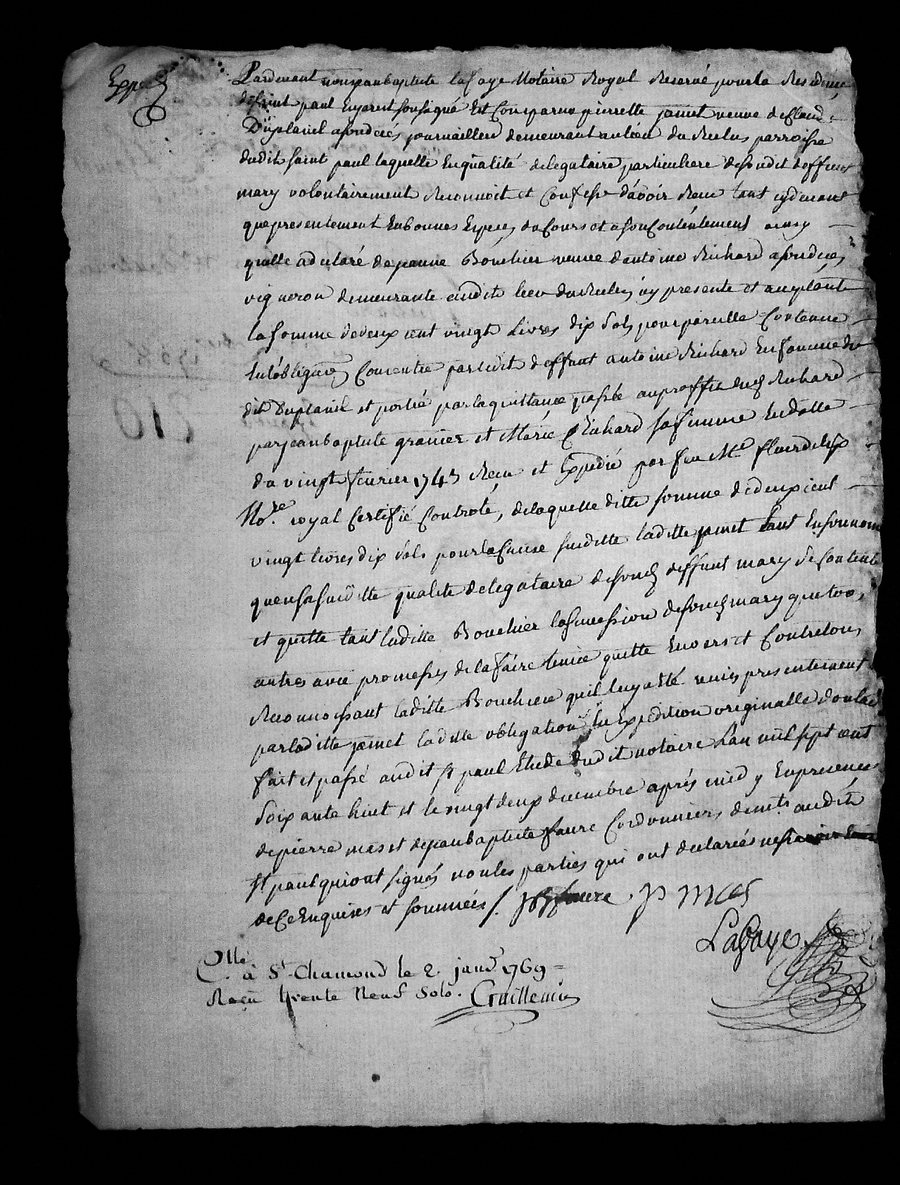 Expé
Pardevant nous jean baptiste lafaye Notaire Royal Reservé pour la Residence
de saint paul En jarest soussigné Est Comparue pierrette jamet veuve de claude
Duplanil a son decés journaillier demeurant au lieu du Reclus parroisse
dudit saint paul laquelle En qualité de legataire particuliere de sondit deffunt
mary volontairement Reconnoit et Confesse d'avoir Reçu tant cydevant
que presentement En bonnes Especes du Cours et a son Contentement ainsy
qu'elle a declaré de jeanne Bouchier veuve d'antoine Richard a son decés
vigneron demeurante audit lieu du Reclus icy presente et acceptante
la somme de deux cent vingt Livres dix sols pour pareille Contenue
En l'obligaõn Consentie par ledit deffunt antoine Richard En faveur du
dit Duplanil et portée par la quittance passée au proffit dud Richard
par jean baptiste granier et Marie Richard sa femme En datte
du vingt fevrier 1743 Reçu et Expedié par feu Me fleurdelix
No.re royal Certifié Controlé, de laquelle ditte somme de deux cent
vingt livres dix sols pour la Cause susditte laditte jamet tant En son nom
qu'en sa susditte qualité de legataire de sond deffunt mary se Contente
et quitte tant laditte Bouchier la succession de son mary que tous
autres avec promesses de la faire tenir quitte Envers et Contre tous
Reconnoissant laditte Bouchier qu'il luy a été remis presentement
par laditte jamet laditte obligation En Expedition originalle dont acte
fait et passé audit St paul Etude dudit notaire L'an mil sept cent
Soixante huit et le vingt deux decembre après midy En presences
de pierre mas et de jean baptiste faure Cordonniers demts audit
St paul qui ont signés non les parties qui ont declarées ne sçavoir
de ce Enquises et sommées /. jbfaure p mas
Lafaye
Ctllé
à St Chamond le 2. janv 1769 =
Reçu trente Neuf Sols. Guillemin